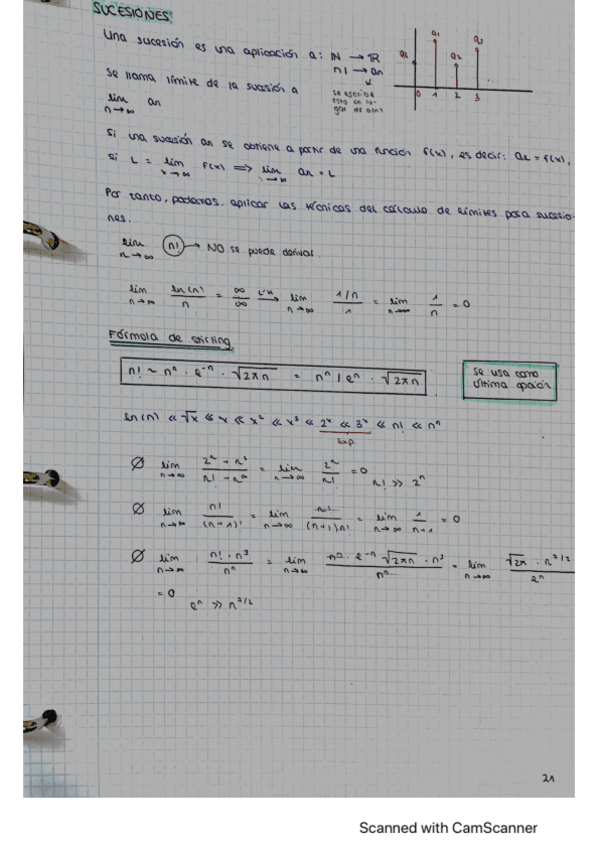 SUCESIONES
Una sucesión es una aplicación a: ℕ → ℝ
n! → an
se escribe esto en lugar de a(n)
a0 a1 a2 a3
0 1 2 3
Se llama límite de la sucesión a
lim n→∞ an
Si una sucesión an se obtiene a partir de una función f(x), es decir: an = f(x),
si L = lim x→∞ f(x) ⟹ lim an = L
Por tanto, podemos aplicar las técnicas del cálculo de límites para sucesio-
nes.
lim n→∞ n! → NO se puede derivar
lim n→∞ ln(n)/n = ∞/∞ L'H → lim n→∞ (1/n)/1 = lim n→∞ 1/n = 0
Fórmula de stirling
n! ~ nⁿ · e⁻ⁿ · √2πn = nⁿ / eⁿ · √2πn
Se usa como última opción
ln(n) ≪ √x ≪ x ≪ x² ≪ x³ ≪ 2ˣ ≪ 3ˣ ≪ n! ≪ nⁿ
Exp
∅ lim n→∞ = lim n→∞ 2ⁿ/n! = 0 n! ≫ 2ⁿ
∅ lim n→∞ n!/(n+1)! = lim n→∞ n!/(n+1)n! = lim n→∞ 1/n+1 = 0
∅ lim n→∞ n! · n³/nⁿ = lim n→∞ nⁿ · e⁻ⁿ √2πn · n³/nⁿ = lim n→∞ √2π · /eⁿ
= 0
eⁿ ≫
21
Scanned with CamScanner